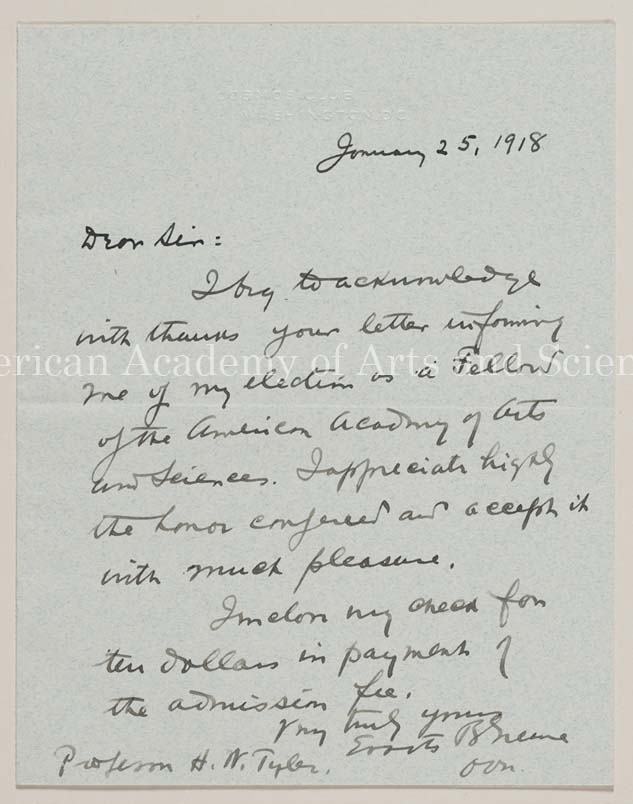 COSMOS CLUB
WASHINGTON, D.C.
January 25, 1918
Dear Sir:
I beg to acknowledge
with thanks your letter informing
American Academy of Arts and Sciences
me of my election as a Fellow
of the American Academy of Arts
and Sciences. I appreciate highly
the honor conferred and accept it
with much pleasure.
I inclose my check for
ten dollars in payment of
the admission fee.
Very truly yours
Professor H. W. Tyler.